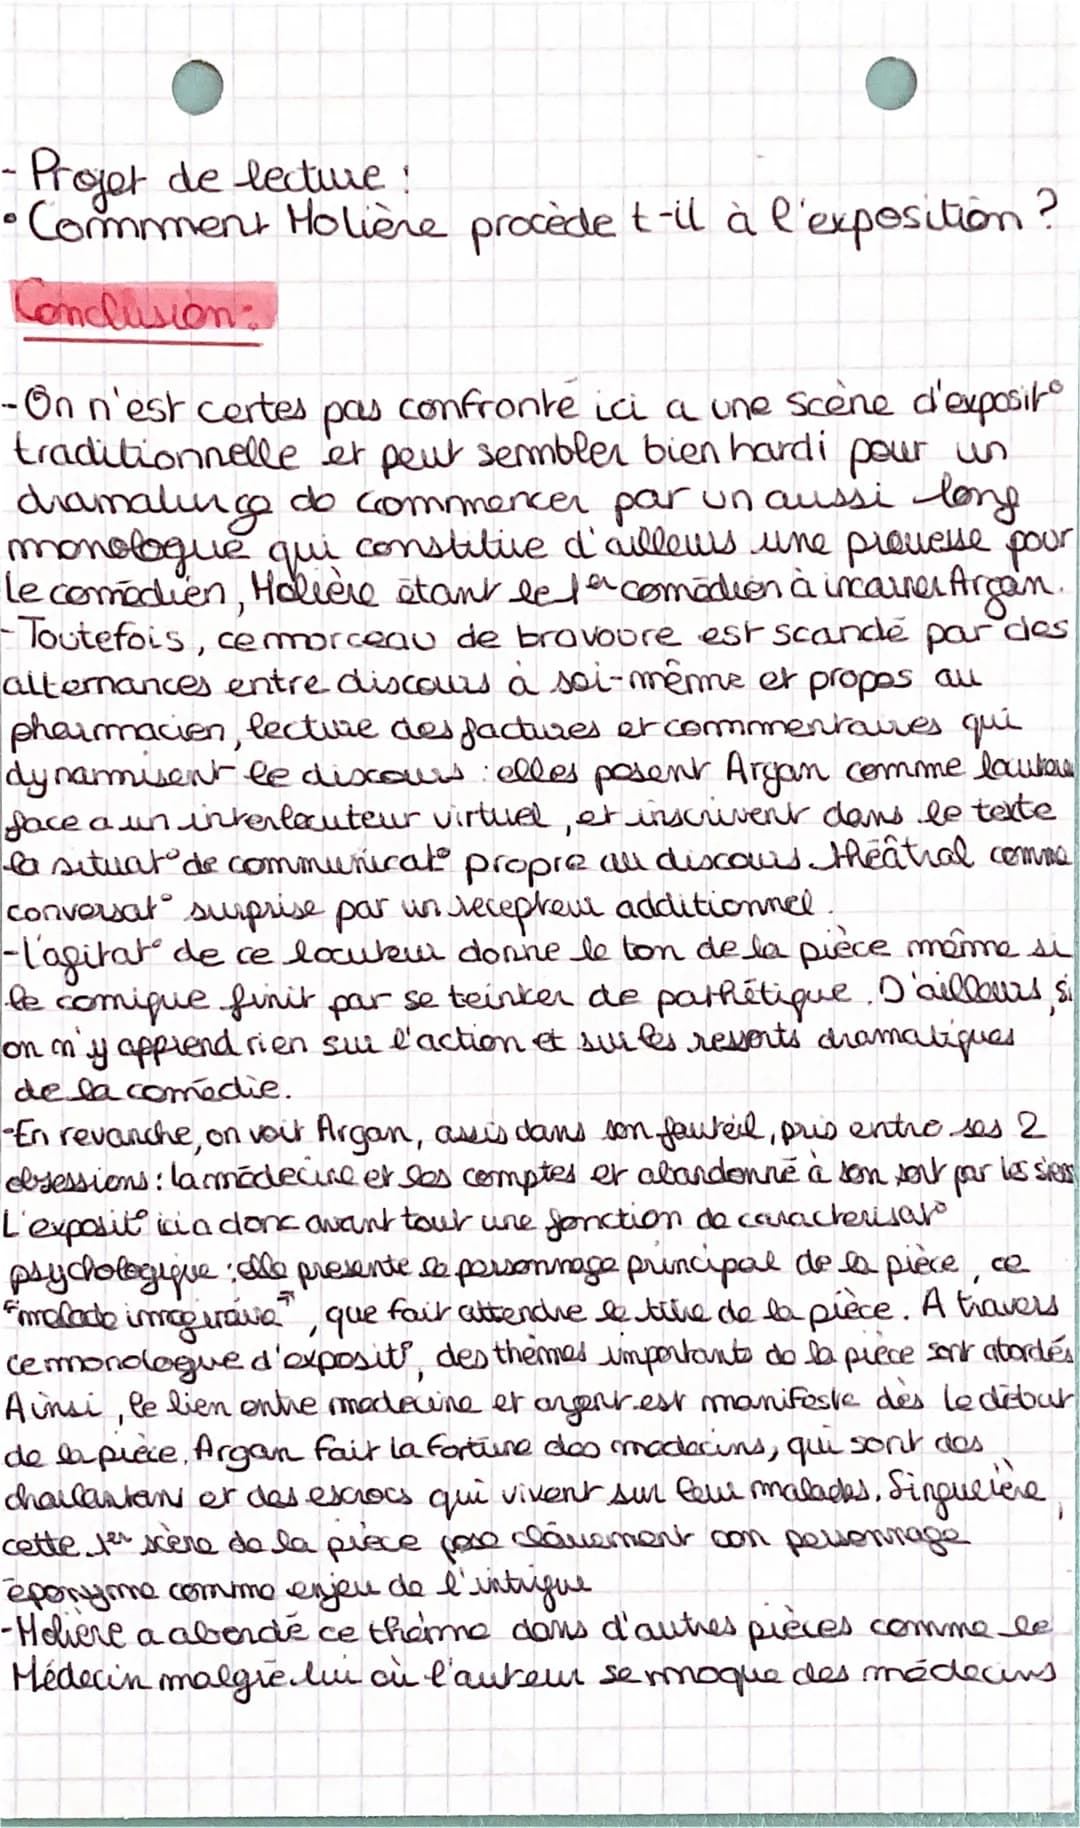 - Projet de lecture :
• Commment Molière procède t-il à l'exposition ?
Conclusion :
- On n'est certes pas confronté ici a une scène d'exposit°
traditionnelle et peut sembler bien hardi pour un
dramaturge de commencer par un aussi long
monologue qui constitue d'ailleurs une prouesse pour
le comédien, Molière étant le 1er comédien à incarner Argan.
- Toutefois, ce morceau de bravoure est scandé par des
alternances entre discours à soi-même et propos au
pharmacien, lecture des factures et commentaires qui
dynamisent le discours : elles posent Argan comme locuteur
face a un interlocuteur virtuel, et inscrivent dans le texte
la situat° de communicat° propre au discours théâtral comme
conversat° surprise par un recepteur additionnel.
- L'agitat° de ce locuteur donne le ton de la pièce même si
le comique finit par se teinter de pathétique. D'ailleurs, si
on n'y apprend rien sur l'action et sur les ressorts dramatiques
de la comédie.
- En revanche, on voit Argan, assis dans son fauteil, pris entre ses 2
obsessions : la médecine et les comptes et abandonné à son sort par les siens
L'exposit° ici a donc avant tout une fonction de caracterisat°
psychologique : elle presente le personnage principal de la pièce, ce
"malade imaginaire", que fait attendre le titre de la pièce. A travers
ce monologue d'exposit°, des thèmes importants de la pièce sont abordés
Ainsi, le lien entre medecine et argent est manifeste dès le début
de la pièce. Argan fait la fortune des medecins, qui sont des
charlantans et des escrocs qui vivent sur leur malades. Singulière,
cette 1er scène de la pièce pose clairement son personnage
éponyme comme enjeu de l'intrigue
- Molière a abordé ce thème dans d'autres pièces comme le
Médecin malgré lui où l'auteur se moque des médecins